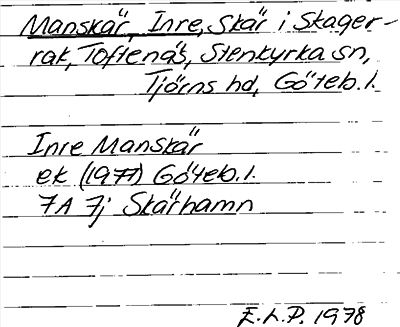 Manskär, Inre, Skär i Skager-
rak, Toftenäs, Stenkyrka sn,
Tjörns hd, Göteb. l.
Inre Manskär
ek (1977) Göteb. l.
7A 7j Skärhamn
E.L.P. 1978